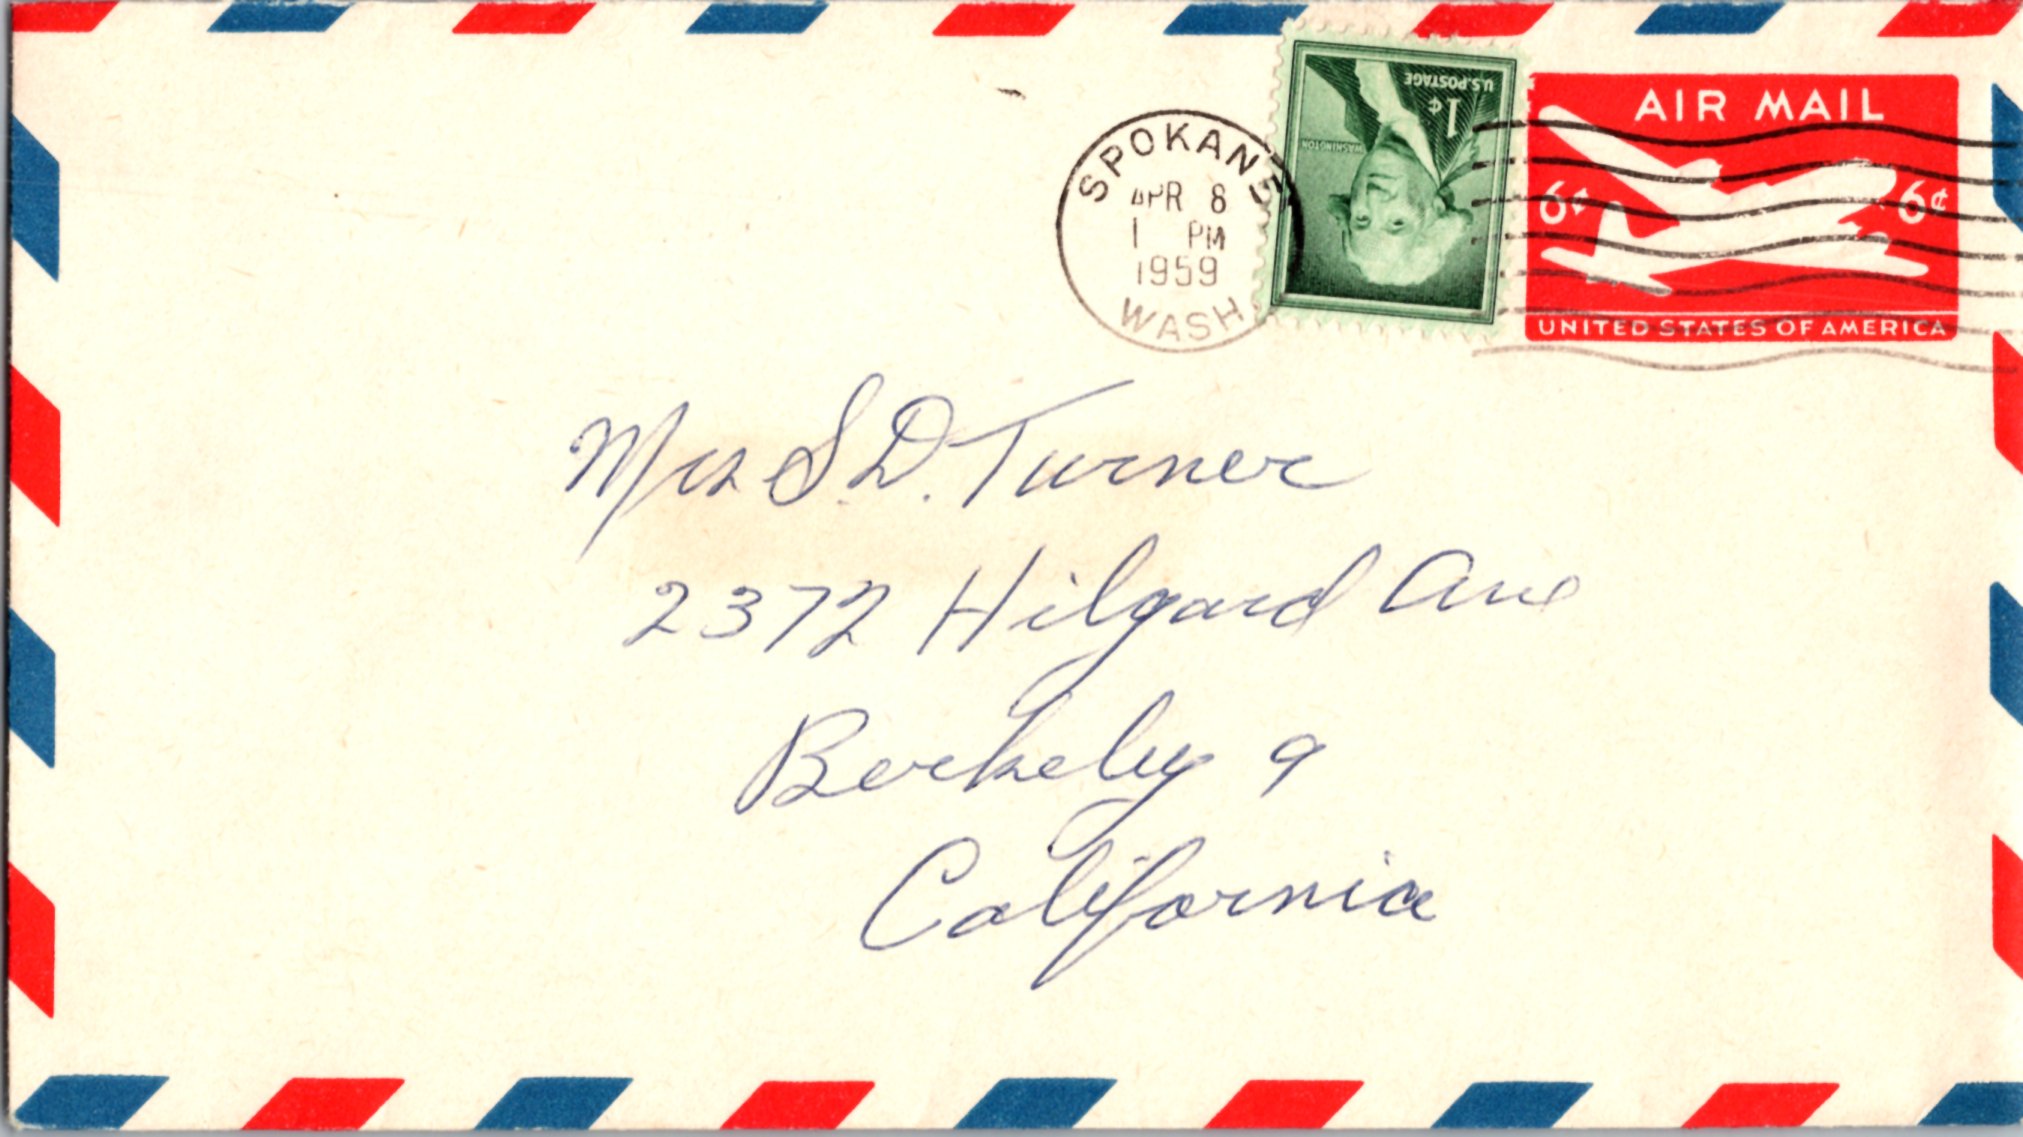 SPOKANE
APR 8
1 PM
1959
WASH
U.S. POSTAGE
1¢
WASHINGTON
AIR MAIL
6¢ 6¢
UNITED STATES OF AMERICA
Mrs S.D. Turner
2372 Hilgard Ave
Berkeley 9
California